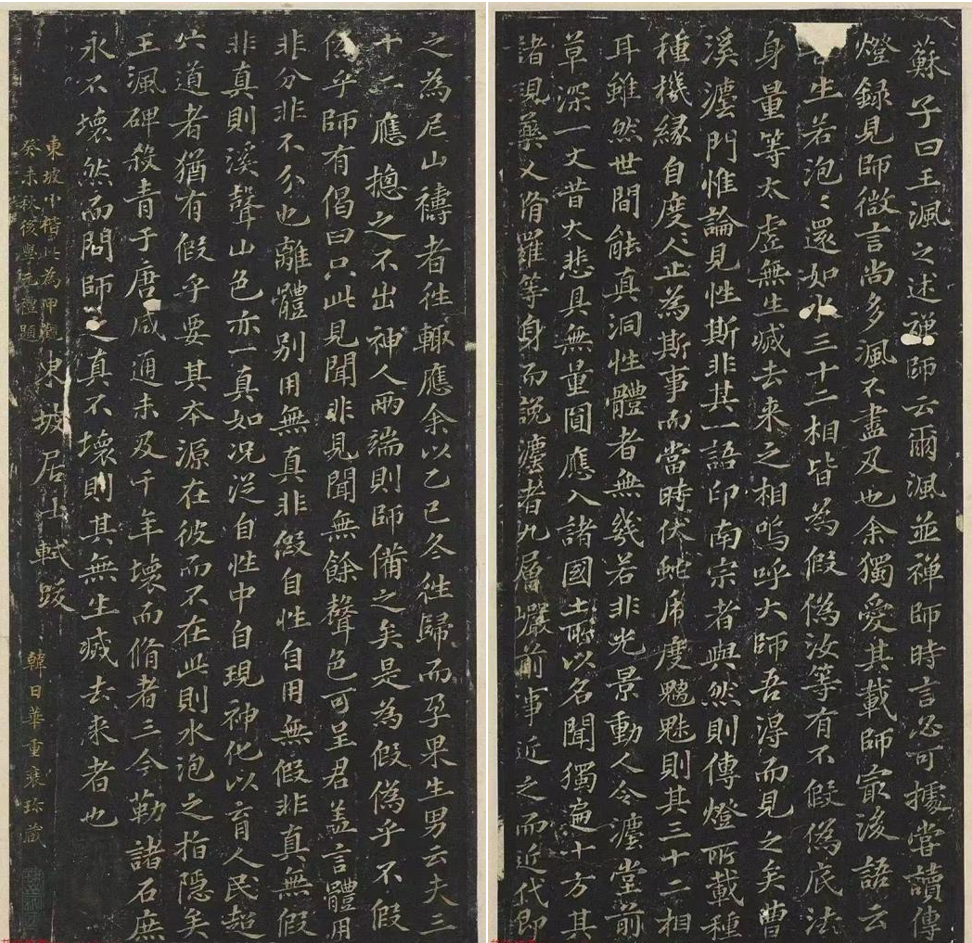 蘇子曰王渢之述禪師云爾渢並禪師時言忍可據嘗讀傳
燈録見師微言尚多渢不盡及也余獨愛其載師㝡後語云
生若泡〻還如水三十二相皆為假偽汝等有不假偽底法
身量等太虗無生滅去来之相嗚呼大師吾淂而見之矣曹
溪灋門惟論見性斯非其一語印南宗者與然則傳燈所載種
種機緣自度〻正為斯事而當時伏蛇席度魑魅則其三十二相
耳雖然世間能真洞性體者無幾若非光景動人令灋堂前
草深一丈昔大悲具無量圓應入諸國土所以名聞獨遍十方其
諸現藥义脩羅等身而說灋者九層巖前事近之而近代即
之為尼山禱者徃輙應余以乙巳冬徃歸而孕果生男云夫三
十二應揔之不出神人兩端則師備之矣是為假偽乎不假
偽乎師有偈曰只此見聞非見聞無餘聲色可呈君盖言體用
非分非不分也離體別用無真非假自性自用無假非真無假
非真則溪聲山色亦一真如况㳂自性中自現神化以育人民超
六道者猶有假乎要其本源在彼而不在此則水泡之指隱矣
王渢碑殺青于唐咸通未及千年壞而脩者三今勒諸石庶
永不壞然而問師之真不壞則其無生滅去来者也
東坡居士軾跋
東坡小楷此為神觀
癸未秋後學阮禮題
韓日華重裝珎藏